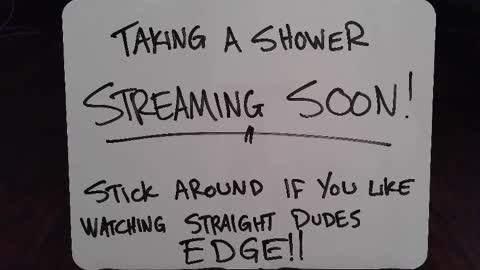 TAKING A SHOWER
STREAMING SOON!
STICK AROUND IF YOU LIKE
WATCHING STRAIGHT DUDES
EDGE!!